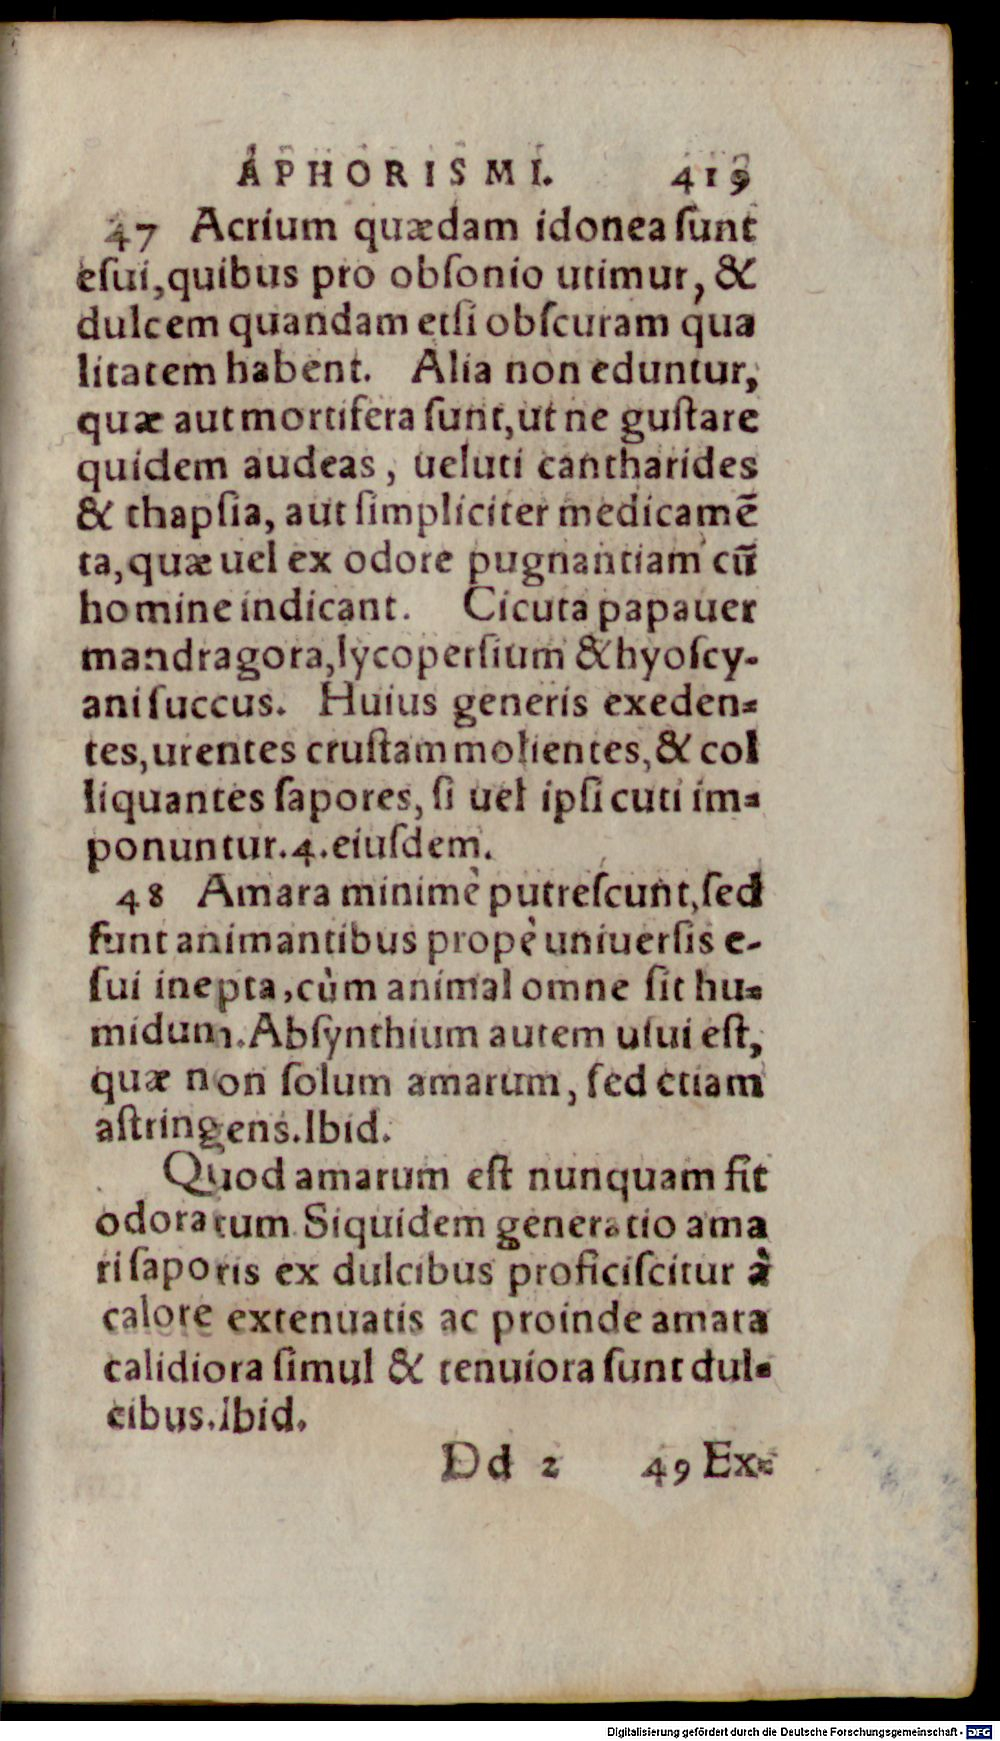 APHORISMI. 419
47 Acrium quædam idonea ſunt
eſui, quibus pro obſonio utimur, &
dulcem quandam etſi obſcuram qua
litatem habent. Alia non eduntur,
quæ aut mortifera ſunt, ut ne guſtare
quidem audeas, ueluti cantharides
& thapſia, aut ſimpliciter medicamē
ta, quæ uel ex odore pugnantiam cū
homine indicant. Cicuta papauer
mandragora, lycoperſium & hyoſcy-
ani ſuccus. Huius generis exeden-
tes, urentes cruſtam molientes, & col
liquantes ſapores, ſi uel ipſi cuti im-
ponuntur. 4. eiuſdem.
48 Amara minimè putreſcunt, ſed
ſunt animantibus propè uniuerſis e-
ſui inepta, cùm animal omne ſit hu-
midum. Abſynthium autem uſui eſt,
quæ non ſolum amarum, ſed etiam
aſtringens. Ibid.
Quod amarum eſt nunquam ſit
odoratum Siquidem generatio ama
ri ſaporis ex dulcibus proficiſcitur à
calore extenuatis ac proinde amara
calidiora ſimul & tenuiora ſunt dul-
cibus. Ibid.
Dd 2 49 Ex-
Digitalisierung gefördert durch die Deutsche Forschungsgemeinschaft - DFG